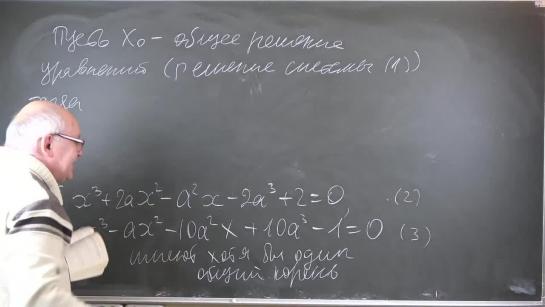 Пусть X₀ - общее решение
уравнений (решение системы (1))
x³+2ax²-a²x-2a³+2=0 (2)
³-ax²-10a²x+10a³-1=0 (3)
имеют хотя бы один
общий корень